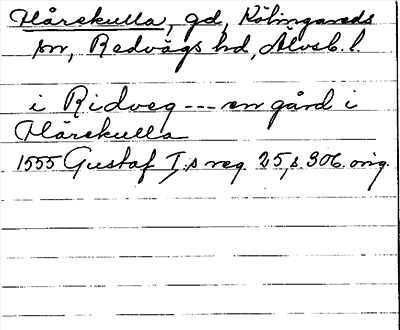 Hårskulla, gd, Kölingareds
sn, Redvägs hd, Älvsb. l.
i Ridveg --- en gård i
Hårekulla
1555 Gustaf I:s reg. 25, s. 306. orig.